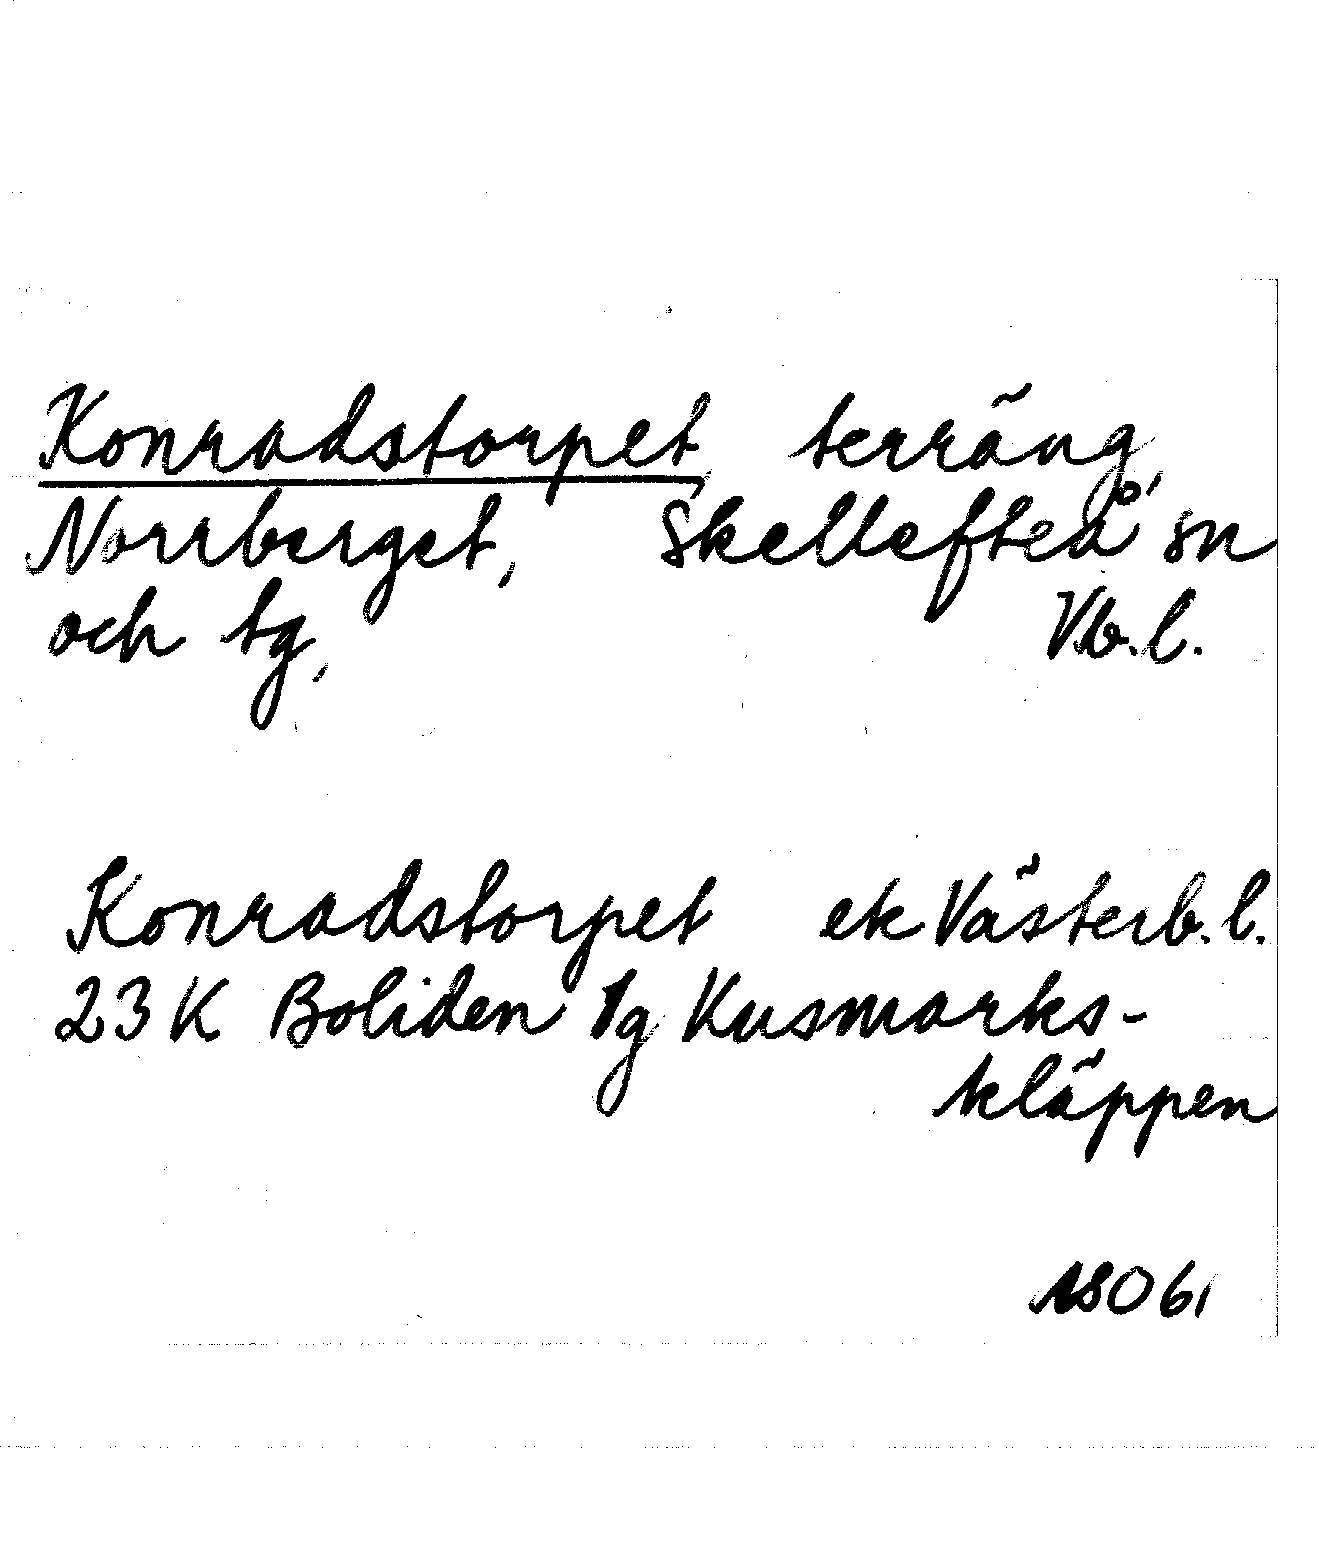 Konradstorpet terräng,
Norrberget, Skellefteå sn
och tg, Vb.l.
Konradstorpet ek Västerb.l.
23 K Boliden 1g Kusmarks-
kläppen
061